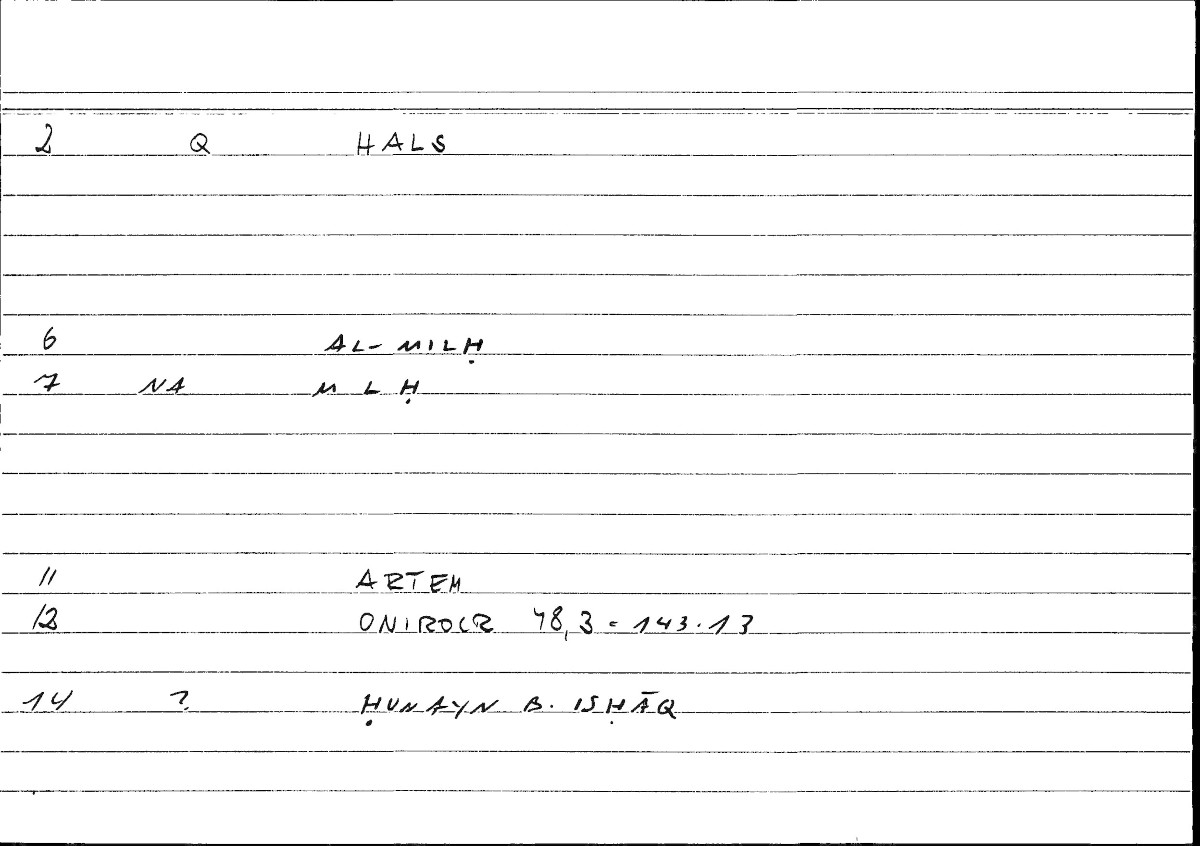 2 Q HALS
6 AL-MILḤ
7 NA MLḤ
11 ARTEM
12 ONIROCR 48,3 = 143.13
14 ? ḤUNAYN B. ISḤĀQ